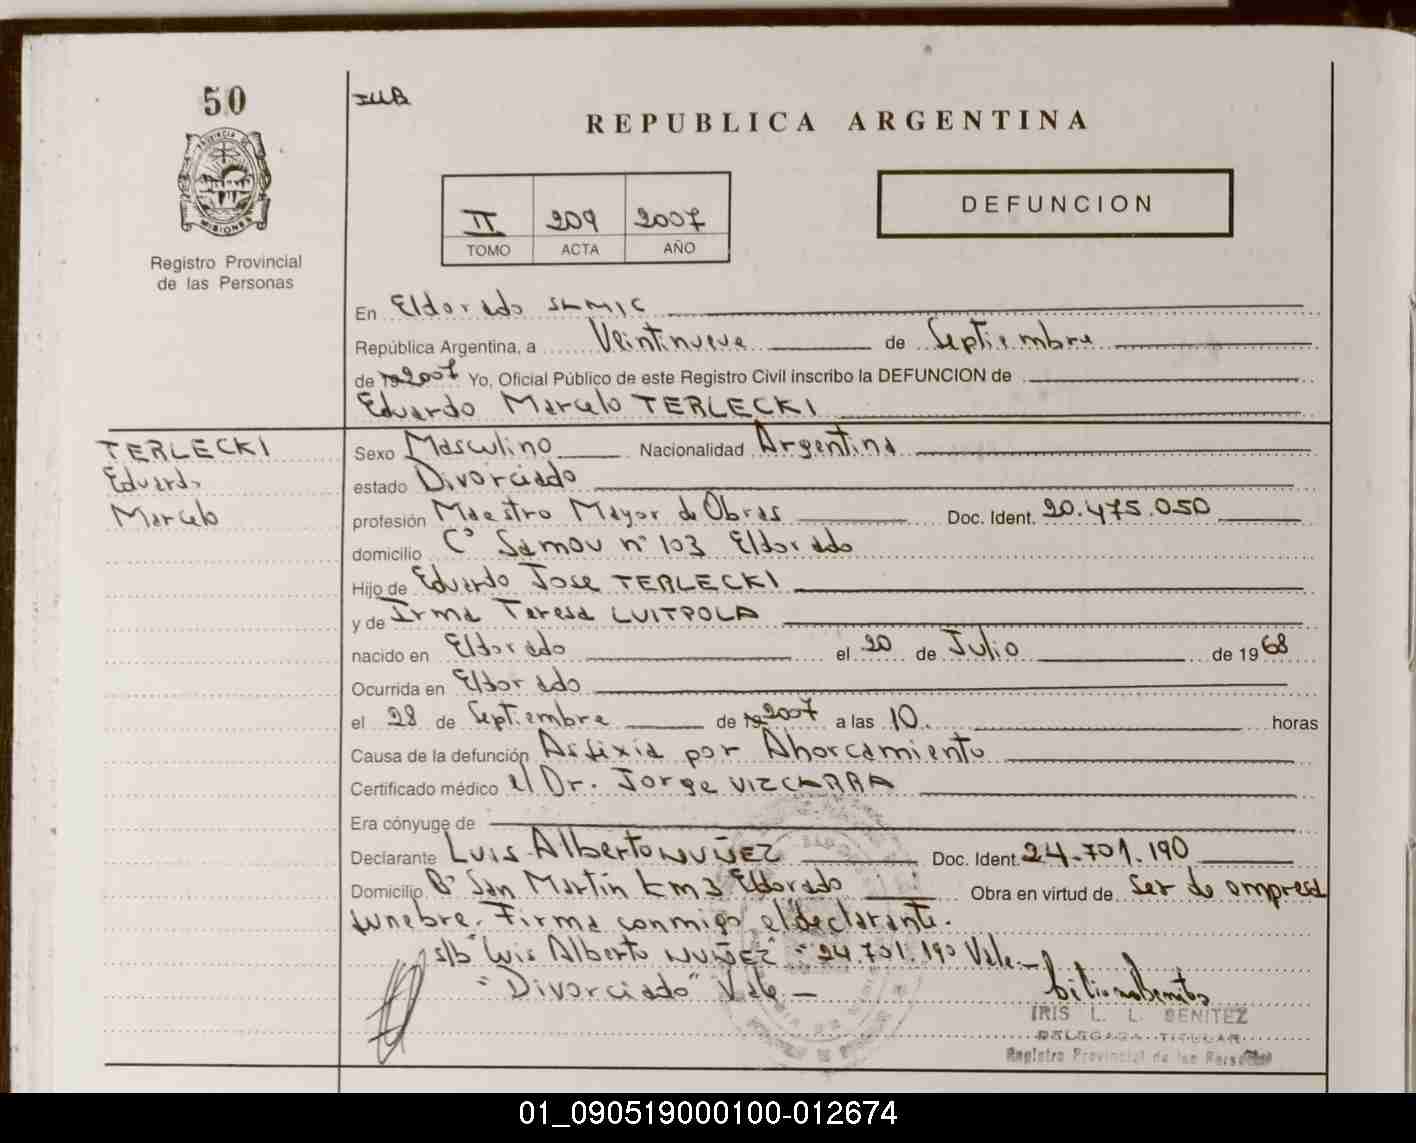 50
PROVINCIA DE
MISIONES
Registro Provincial
de las Personas
REPUBLICA ARGENTINA
II 209 2007
TOMO ACTA AÑO
DEFUNCION
En Eldorado
República Argentina, a Veintinueve de Septiembre
de 19 2007 Yo, Oficial Público de este Registro Civil inscribo la DEFUNCION de
Eduardo Marcelo TERLECKI
TERLECKI
Eduardo
Marcelo
Sexo Masculino Nacionalidad Argentina
estado Divorciado
profesión Maestro Mayor de Obras Doc. Ident. 20.475.050
domicilio Cº Samou nº 103 Eldorado
Hijo de Eduardo Jose TERLECKI
y de Irma Teresa LUITPOLA
nacido en Eldorado el 20 de Julio de 1968
Ocurrida en Eldorado
el 28 de Septiembre de 19 2007 a las 10. horas
Causa de la defunción Asfixia por Ahorcamiento
Certificado médico el Dr. Jorge VIZCARRA
Era cónyuge de
Declarante Luis Alberto NUÑEZ Doc. Ident. 24.701.190
Domicilio Bº San Martín Km 3 Eldorado Obra en virtud de ser de empresa
funebre. Firma conmigo el declarante.
s/b "Luis Alberto NUÑEZ" "24.701.190 Vale.-
"Divorciado" Vale -
IRIS L. L. BENITEZ
DELEGADA TITULAR
Registro Provincial de las Personas
01_090519000100-012674